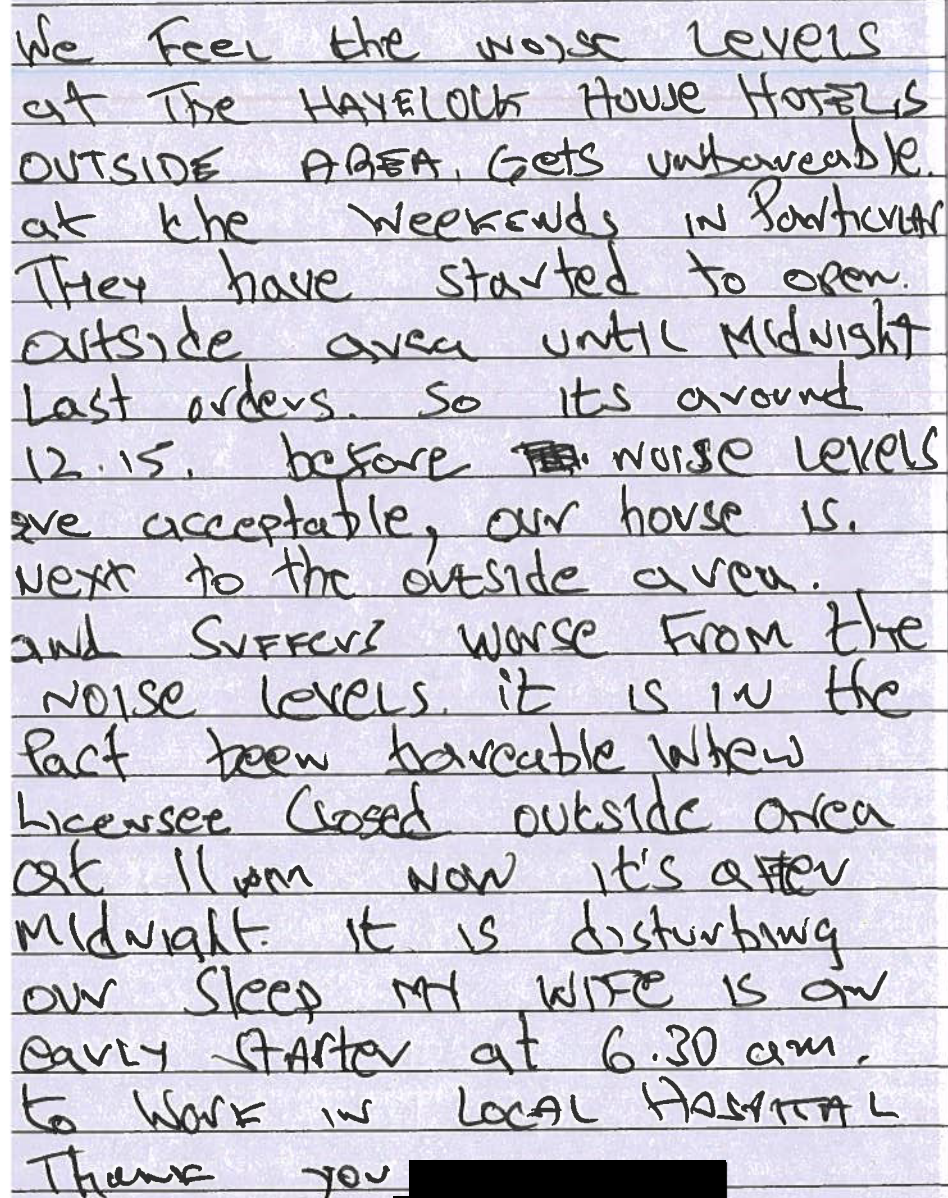 We Feel the noise Levels
at The HAVELOCK HOUSE HOTELS
OUTSIDE AREA. Gets unbareable.
at the Weekends IN Particular
They have started to open.
outside area until Midnight
Last orders. So its around
12.15. before noise levels
are acceptable, our house is.
Next to the outside area.
and Suffers worse From the
noise levels. it is in the
Past been bareable when
Licensee Closed outside area
at 11pm now it's after
Midnight. it is disturbing
our Sleep My Wife is an
early starter at 6.30 am.
to Work in LOCAL HOSPITAL
Thank you